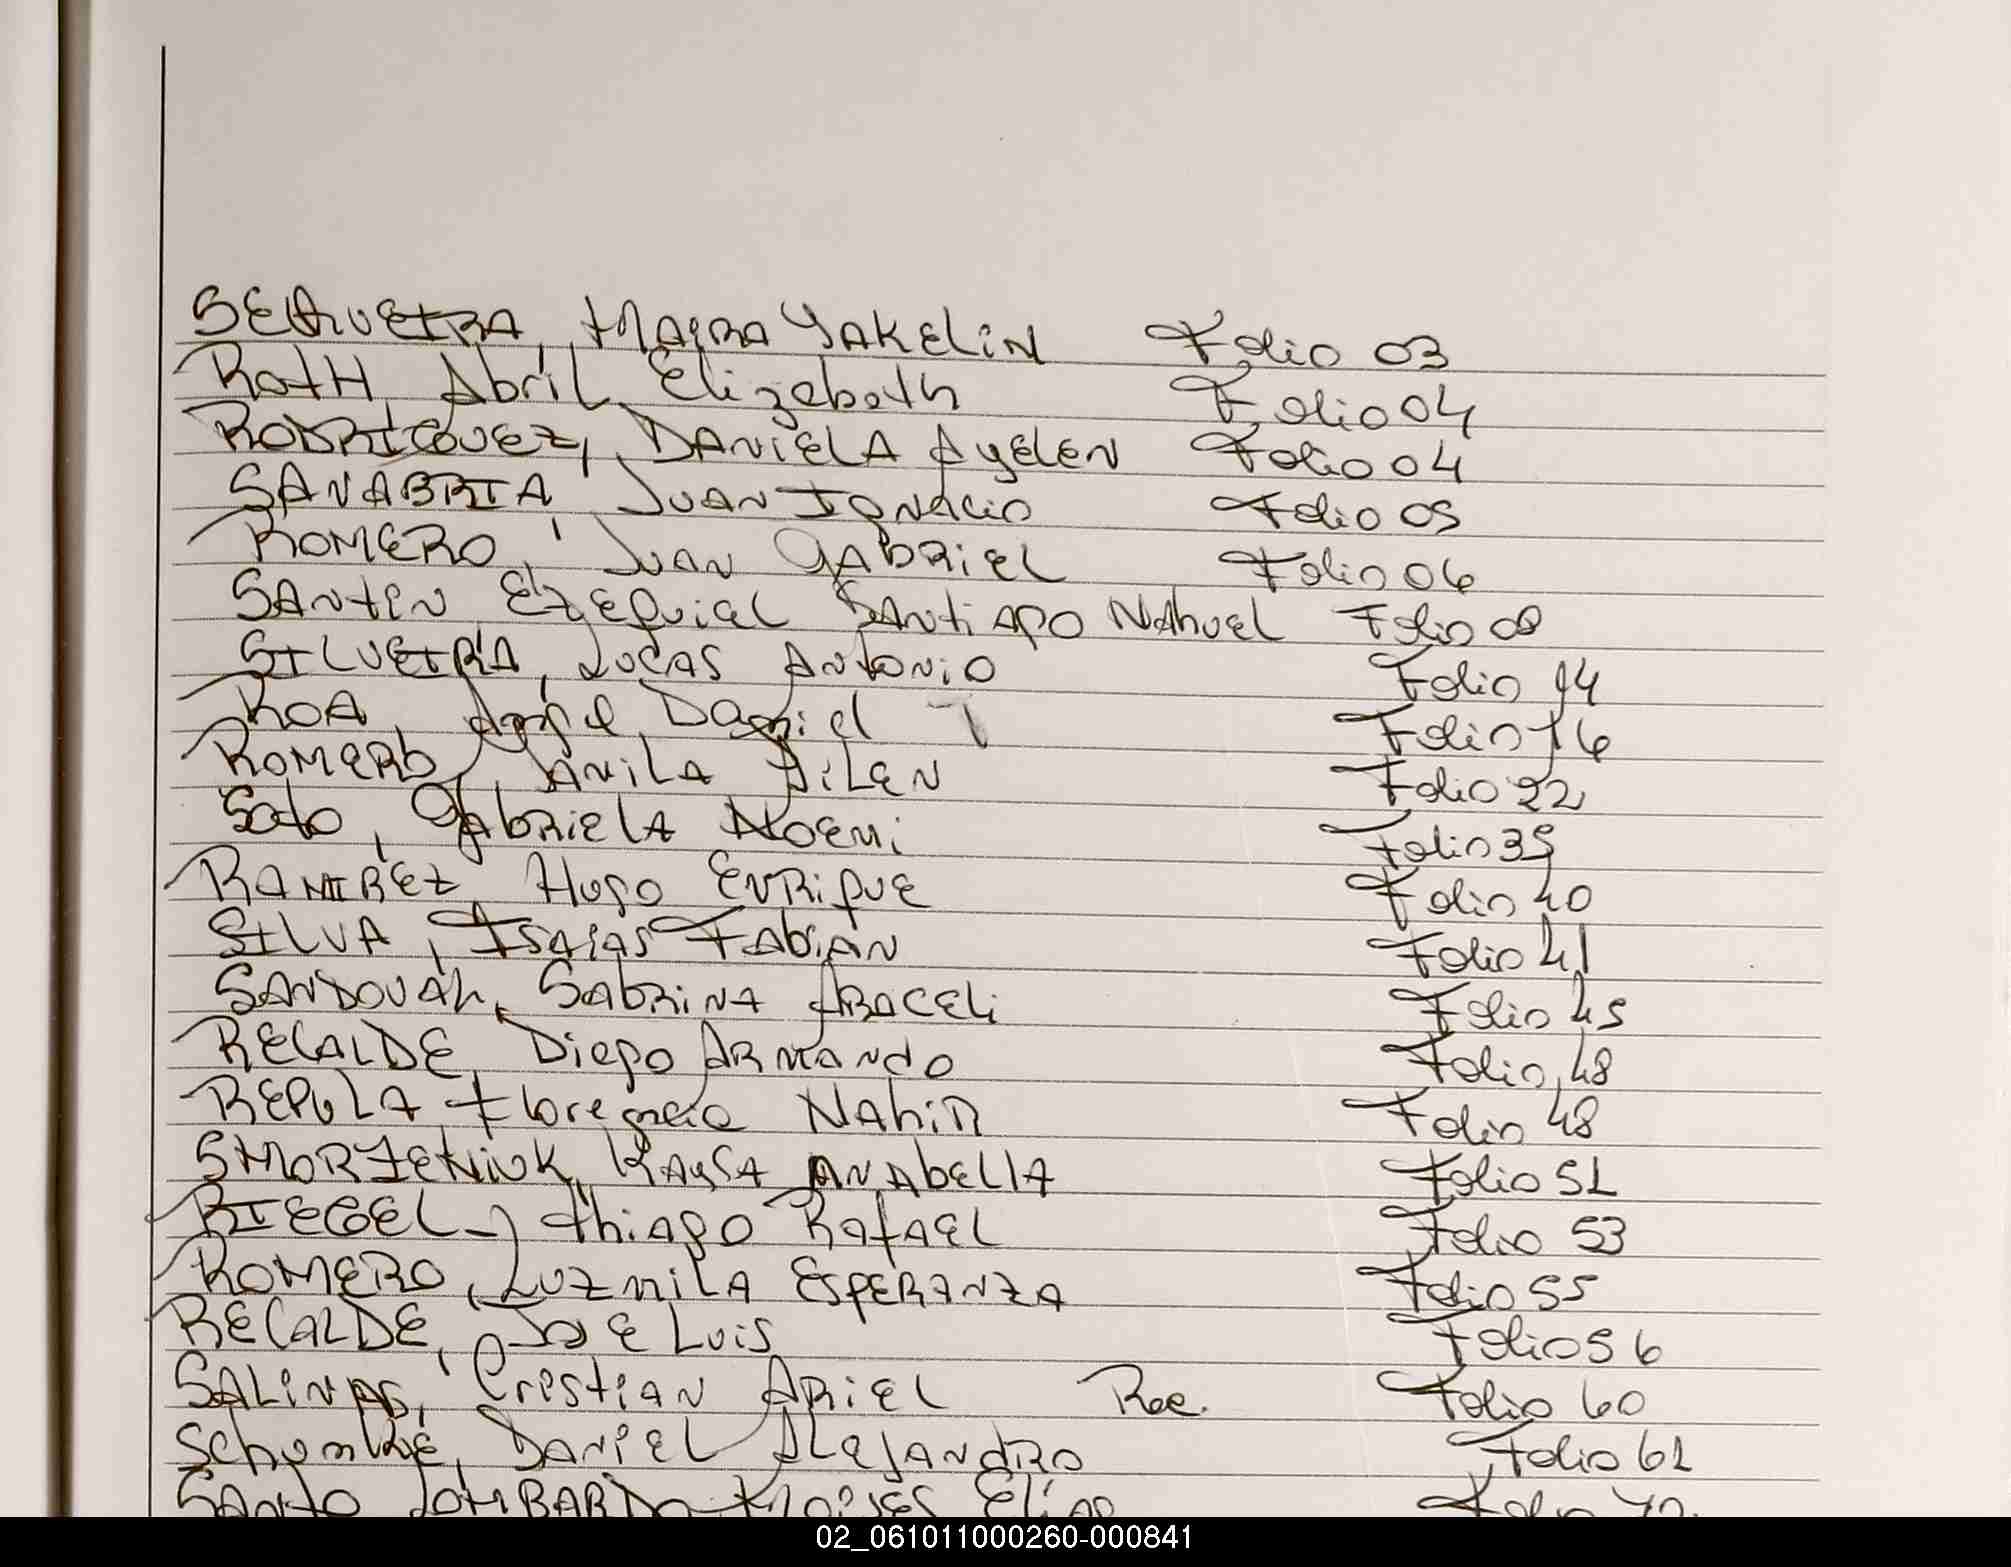 SEQUEIRA, MAIRA YAKELIN Folio 03
ROTH, Abril Elizabeth Folio 04
RODRIGUEZ, DANIELA AYELEN Folio 04
SANABRIA, JUAN IGNACIO Folio 05
ROMERO, JUAN GABRIEL Folio 06
SANTIN EZEQUIEL SANTIAGO NAHUEL Folio 08
SILVEIRA, LUCAS ANTONIO Folio 14
ROA, Daniel Folio 16
ROMERO, AILEN Folio 22
Soto, GABRIELA NOEMI Folio 35
RAMIREZ HUGO ENRIQUE Folio 40
SILVA, ISAIAS FABIAN Folio 41
SANDOVAL, SABRINA ARACELI Folio 45
RECALDE, Diego ARMANDO Folio 48
REPULA Florencia NAHIR Folio 48
ANABELLA Folio 51
RIEGEL, THIAGO RAFAEL Folio 53
ROMERO, LUZMILA ESPERANZA Folio 55
RECALDE, JOSE LUIS Folio 56
SALINAS, CRISTIAN ARIEL Rec. Folio 60
DANIEL ALEJANDRO Folio 61
LOMBARDO Folio
02_061011000260-000841